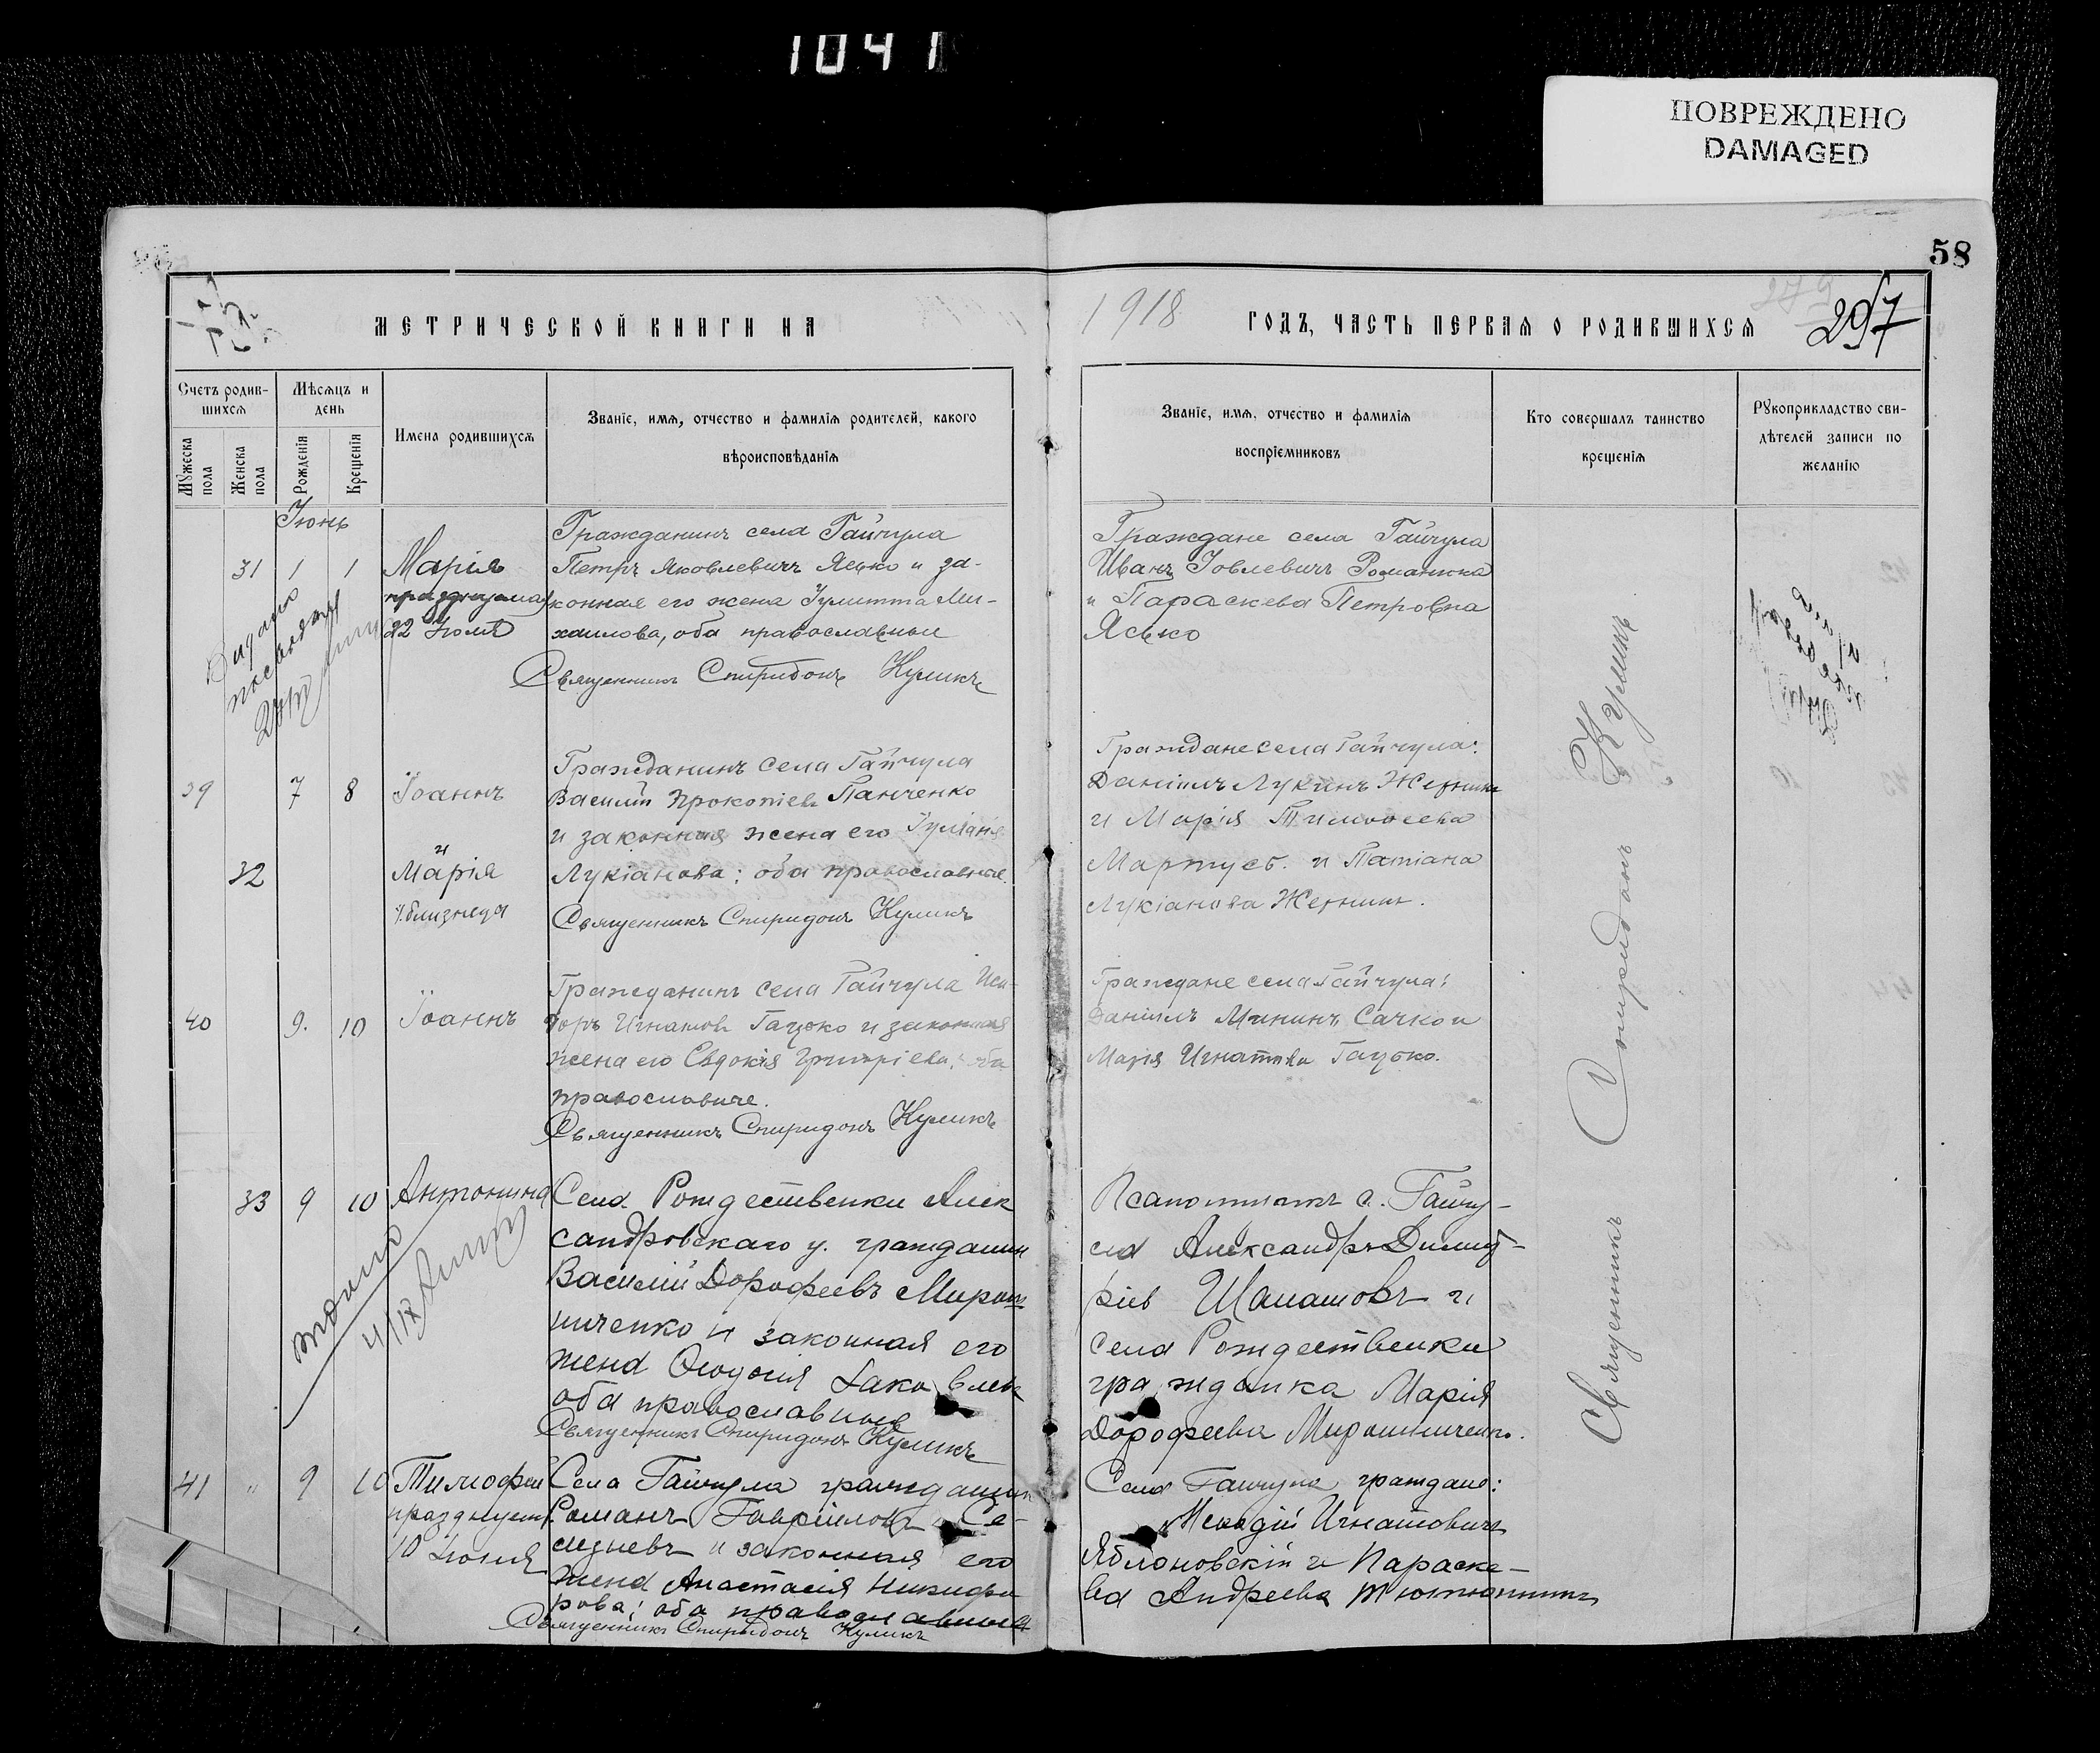 1041
ПОВРЕЖДЕНО
DAMAGED
58
МЕТРИЧЕСКОЙ КНИГИ НА
1918
ГОДЪ, ЧАСТЬ ПЕРВАЯ О РОДИВШИХСЯ
297
Счетъ родив-
шихся
Мужеска пола
Женска пола
Мѣсяцъ и
день
Рожденія
Крещенія
Имена родившихся
Званіе, имя, отчество и фамилія родителей, какого
вѣроисповѣданія
Званіе, имя, отчество и фамилія
воспріемниковъ
Кто совершалъ таинство
крещенія
Рукоприкладство сви-
дѣтелей записи по
желанію
Іюнь
31 1 1
Марія
22 Іюля
Гражданинъ села Гайчула
Петръ Яковлевичъ Ясько и за-
конная его жена Іулитта Ми-
хаилова, оба православные
Священникъ Спиридонъ Куликъ
Граждане села Гайчула
Иванъ Іовлевичъ Романика
и Параскева Петровна
Ясько
39 7 8
Іоаннъ
и
32
Марія
близнецы
Гражданинъ села Гайчула
Василій Прокопіевъ Панченко
и законная жена его Іуліанія
Лукіанова; оба православные.
Священникъ Спиридонъ Куликъ
Граждане села Гайчула:
Даніилъ Лукинъ
и Марія Тимофеева
и Татіана
Лукіанова
40 9. 10
Іоаннъ
Гражданинъ села Гайчула Иси-
доръ Игнатовъ Гацько и законная
жена его Евдокія оба
православные.
Священникъ Спиридонъ Куликъ
Граждане села Гайчула:
Даніилъ Мининъ Сачко и
Марія Игнатова Гацько.
33 9 10
Антонина
Села Рождественки Алек
сандровскаго у. гражданин
Василій Дорофеевъ Мирош
ниченко и законная его
жена Феодосія Іаковлева
оба православные
Священникъ Спиридонъ Куликъ
Псаломщикъ с. Гайчу-
ла Александръ Димит-
ріев и
села Рождественки
гражданка Марія
Дорофеева Мирошниченко.
41 " 9 10
Тимофей
празднует
10 Іюня
Села Гайчула гражданин
Романъ Гавріиловъ Се-
лезневъ и законная его
жена Анастасія Никифо
рова; оба православные
Священникъ Спиридонъ Куликъ
Села Гайчула граждане:
Игнатовичъ
Яблоновскій и Параске-
ва Андреева
Священникъ Спиридонъ Куликъ